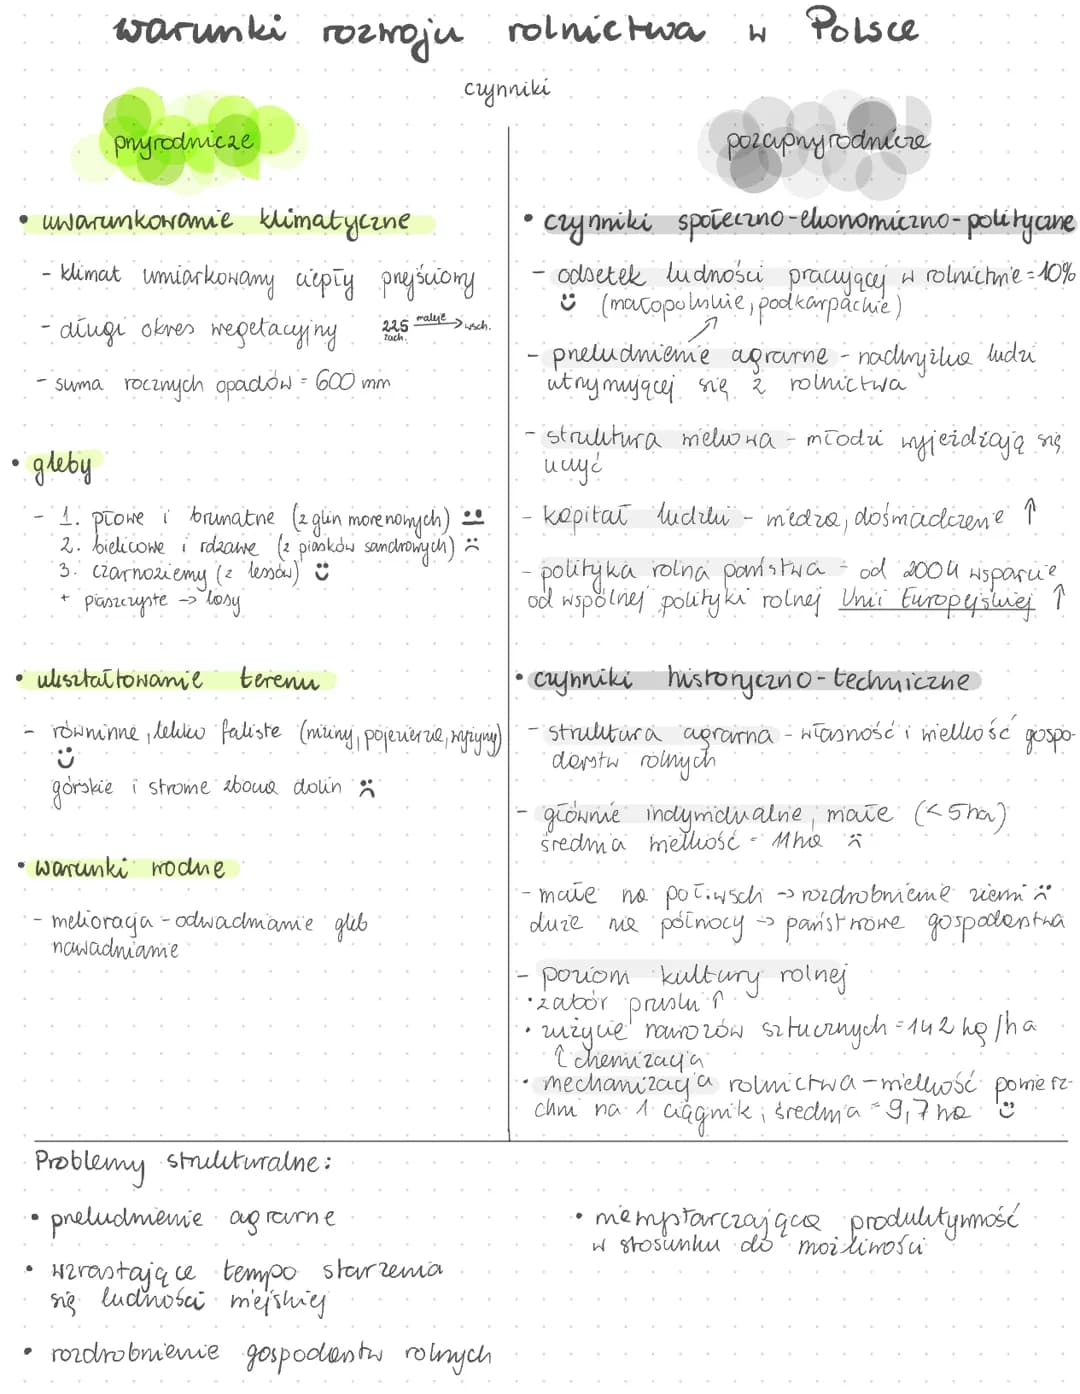 warunki rozwoju rolnictwa w Polsce
czynniki
przyrodnicze
• uwarunkowanie klimatyczne
- klimat umiarkowany ciepły przejściowy
- długi okres wegetacyjny 225 maleje → wsch.
zach.
- suma rocznych opadów = 600 mm
• gleby
- 1. płowe i brunatne (z glin morenowych)
2. bielicowe i rdzawe (z piasków sandrowych)
3. czarnoziemy (z lessów)
+ piaszczyste → lasy
• ukształtowanie terenu
- równinne, lekko faliste (niziny, pojezierza, wyżyny)
górskie i strome zbocza dolin
• warunki wodne
- melioracja - odwadnianie gleb
nawadnianie
pozaprzyrodnicze
• czynniki społeczno-ekonomiczno-polityczne
- odsetek ludności pracującej w rolnictwie = 10%
(małopolskie, podkarpackie)
- przeludnienie agrarne - nadwyżka ludzi
utrzymującej się z rolnictwa
- struktura wiekowa - młodzi wyjeżdżają się
uczyć
- kapitał ludzki - wiedza, doświadczenie ↑
- polityka rolna państwa - od 2004 wsparcie
od wspólnej polityki rolnej Unii Europejskiej ↑
• czynniki historyczno-techniczne
- struktura agrarna - własność i wielkość gospo-
darstw rolnych
- głównie indywidualne, małe (<5ha)
średnia wielkość = 11ha
- małe na poł.iwsch → rozdrobnienie ziemi
duże na północy → państwowe gospodarstwa
- poziom kultury rolnej
• zabór pruski ↑
• zużycie nawozów sztucznych = 142 kg/ha
chemizacja
• mechanizacja rolnictwa - wielkość powierz-
chni na 1 ciągnik, średnia = 9,7 ha
Problemy strukturalne:
• przeludnienie agrarne
• wzrastające tempo starzenia
się ludności miejskiej
• rozdrobnienie gospodarstw rolnych
• niewystarczająca produktywność
w stosunku do możliwości